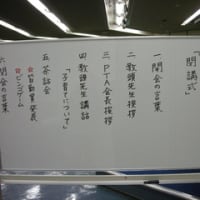 「開講式」
一 開会の言葉
二 教頭先生挨拶
三 PTA会長挨拶
四 教頭先生講話
「子育てについて」
五 茶話会
☆皆勤賞発表
☆ビンゴゲーム
六 閉会の言葉